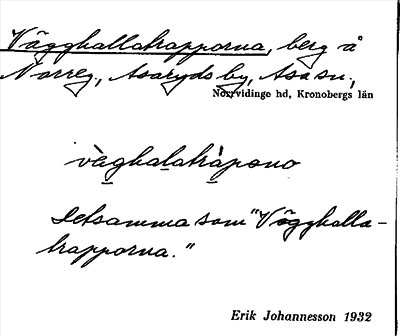 Vägghallatrapporna, berg å
Norreg., Asaryds by, Asa sn.,
Norrvidinge hd, Kronobergs län
vàghalatràpono
Detsamma som "Vägghalla-
trapporna."
Erik Johannesson 1932